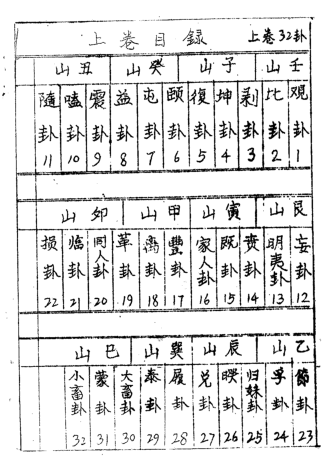 上卷目録 上卷32卦
壬山 子山 癸山 丑山
观卦 1
比卦 2
剥卦 3
坤卦 4
復卦 5
頤卦 6
屯卦 7
益卦 8
震卦 9
嗑卦 10
隨卦 11
艮山 寅山 甲山 卯山
妄卦 12
明夷卦 13
贲卦 14
既卦 15
家人卦 16
豐卦 17
离卦 18
革卦 19
同人卦 20
临卦 21
损卦 22
乙山 辰山 巽山 巳山
節卦 23
孚卦 24
归妹卦 25
睽卦 26
兑卦 27
履卦 28
泰卦 29
大畜卦 30
蒙卦 31
小畜卦 32